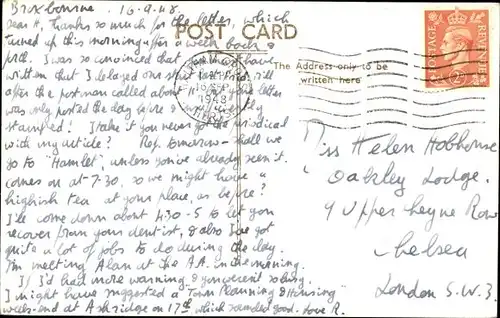 Broxbourne. 16.9.48.
Dear H, Thanks so much for the letter, which
turned up this morning after a week back &
I was so convinced that
written that I delayed our start till
after the postman called about 11. & your letter
was only posted the day before &
stamped! I take it you never got the periodical
with my article? Rep. tomorrow - shall we
go to "Hamlet", unless you've already seen it.
comes on at 7-30, so we might have a
highish tea at your place, as before?
I'll come down about 4.30-5 to let you
recover from your dentist, & also I've got
quite a lot of jobs to do during the day.
I'm meeting Alan at the A.A. in the morning.
If I'd had more warning & you weren't so busy,
I might have suggested a "Town Planning & Housing"
week-end at Ashridge on 17th, which sounded good. Love R.
POST CARD
The Address only to be
written here
1948
POSTAGE
REVENUE
Miss Helen Hobhouse
"Oakley Lodge,
9 Upper Cheyne Row
Chelsea
London S.W.3.